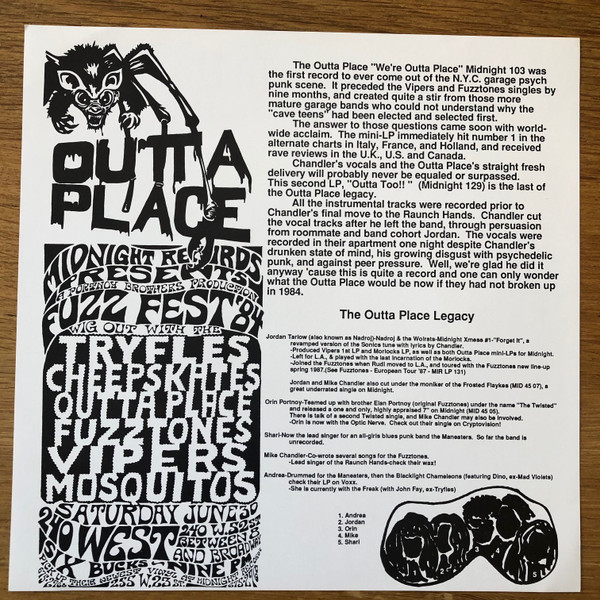 OUTTA
PLACE
MIDNIGHT RECORDS
PRESENTS
A PORTNOY BROTHERS PRODUCTION
FUZZ FEST '84
WIG OUT WITH THE
TRYFLES
CHEEPSKATES
OUTTA PLACE
FUZZTONES
VIPERS
MOSQUITOS
SATURDAY JUNE 30
240 WEST
240 W.52 ST
BETWEEN 8
AND BROADWAY
BUCKS NINE PM
The Outta Place "We're Outta Place" Midnight 103 was
the first record to ever come out of the N.Y.C. garage psych
punk scene. It preceded the Vipers and Fuzztones singles by
nine months, and created quite a stir from those more
mature garage bands who could not understand why the
"cave teens" had been elected and selected first.
The answer to those questions came soon with world-
wide acclaim. The mini-LP immediately hit number 1 in the
alternate charts in Italy, France, and Holland, and received
rave reviews in the U.K., U.S. and Canada.
Chandler's vocals and the Outta Place's straight fresh
delivery will probably never be equaled or surpassed.
This second LP, "Outta Too!! " (Midnight 129) is the last of
the Outta Place legacy.
All the instrumental tracks were recorded prior to
Chandler's final move to the Raunch Hands. Chandler cut
the vocal tracks after he left the band, through persuasion
from roommate and band cohort Jordan. The vocals were
recorded in their apartment one night despite Chandler's
drunken state of mind, his growing disgust with psychedelic
punk, and against peer pressure. Well, we're glad he did it
anyway 'cause this is quite a record and one can only wonder
what the Outta Place would be now if they had not broken up
in 1984.
The Outta Place Legacy
Jordan Tarlow (also known as Nadroj)-Nadroj & the Wolrats-Midnight Xmess #1-"Forget It", a
revamped version of the Sonics tune with lyrics by Chandler.
-Produced Vipers 1st LP and Morlocks LP, as well as both Outta Place mini-LPs for Midnight.
-Left for L.A., & played with the last incarnation of the Morlocks.
-Joined the Fuzztones when Rudi moved to L.A., and toured with the Fuzztones new line-up
spring 1987.(See Fuzztones - European Tour '87 - MIR LP 131)
Jordan and Mike Chandler also cut under the moniker of the Frosted Flaykes (MID 45 07), a
great underrated single on Midnight.
Orin Portnoy-Teamed up with brother Elan Portnoy (original Fuzztones) under the name "The Twisted"
and released a one and only, highly appraised 7" on Midnight (MID 45 05).
There is talk of a second Twisted single, and Mike Chandler may also be involved.
-Orin is now with the Optic Nerve. Check out their single on Cryptovision!
Shari-Now the lead singer for an all-girls blues punk band the Maneaters. So far the band is
unrecorded.
Mike Chandler-Co-wrote several songs for the Fuzztones.
-Lead singer of the Raunch Hands-check their wax!
Andrea-Drummed for the Maneaters, then the Blacklight Chameleons (featuring Dino, ex-Mad Violets)
check their LP on Voxx.
-She is currently with the Freak (with John Fay, ex-Tryfles)
1. Andrea
2. Jordan
3. Orin
4. Mike
5. Shari